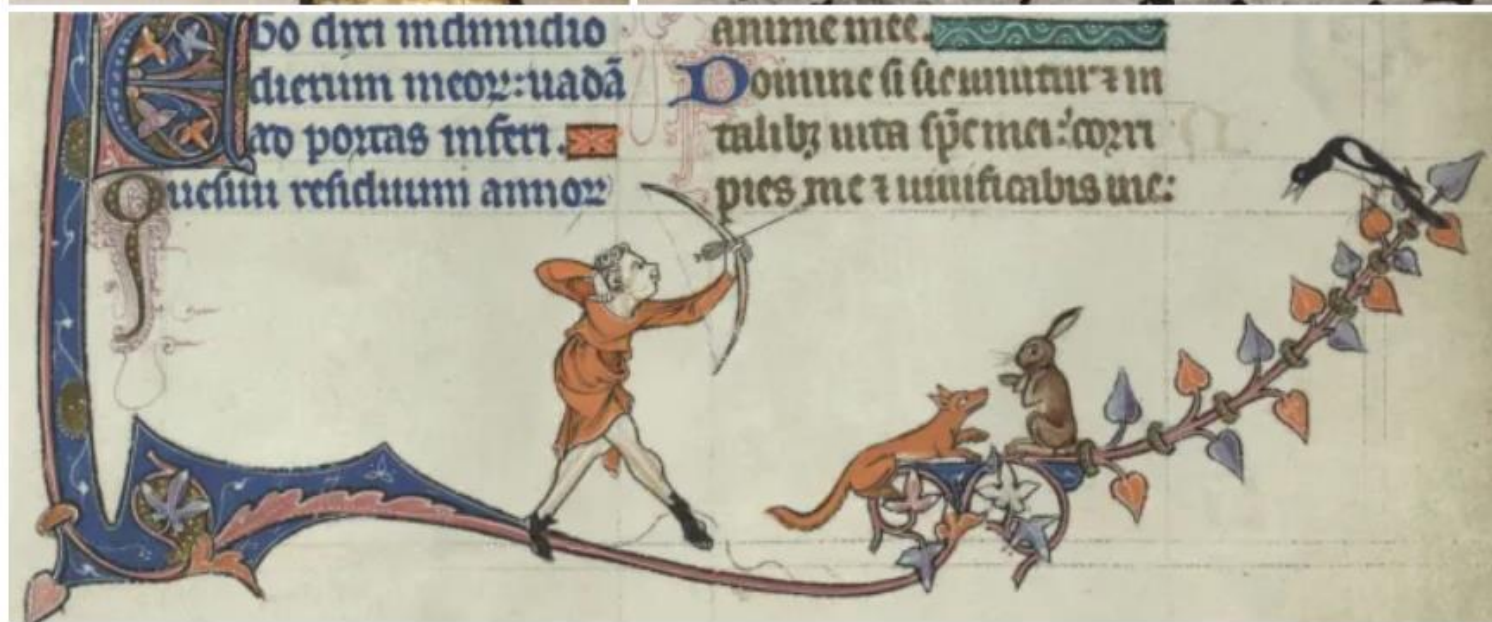 Ego dixi in dimidio
dierum meoꝝ: uadā
ad portas inferi.
Quesiui residuum annoꝝ
anime mee.
Domine si sic uiuitur ⁊ in
talibꝫ uita sp̄c mei: corri
pies me ⁊ uiuificabis me: